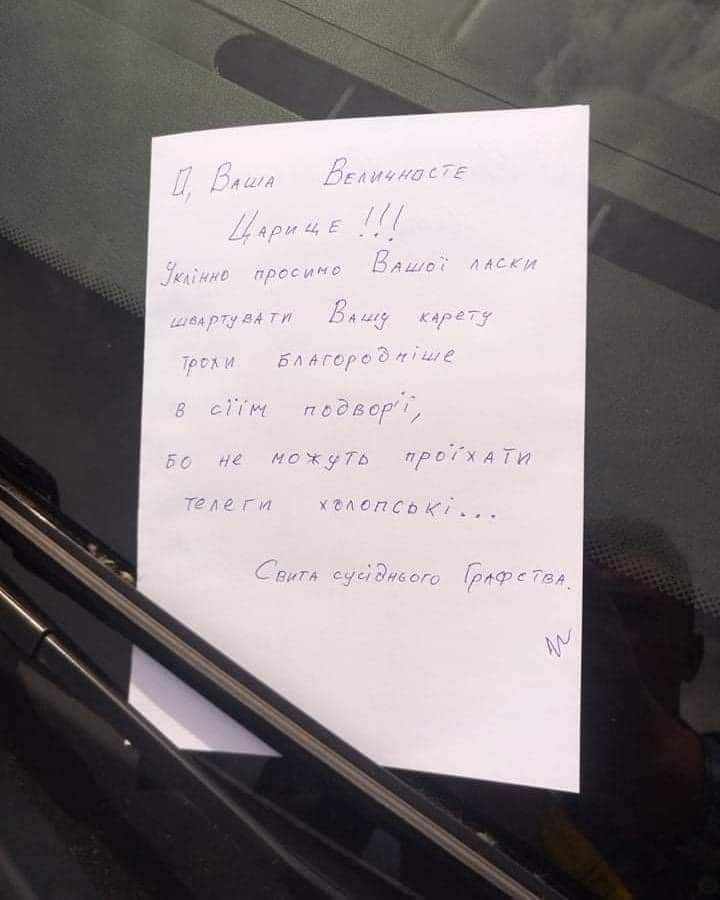 О, Ваша Величносте
Царице !!!
Уклінно просимо Вашої ласки
швартувати Вашу карету
трохи благородніше
в сіїм подвор'ї,
бо не можуть проїхати
телеги холопські...
Свита сусіднього Графства.